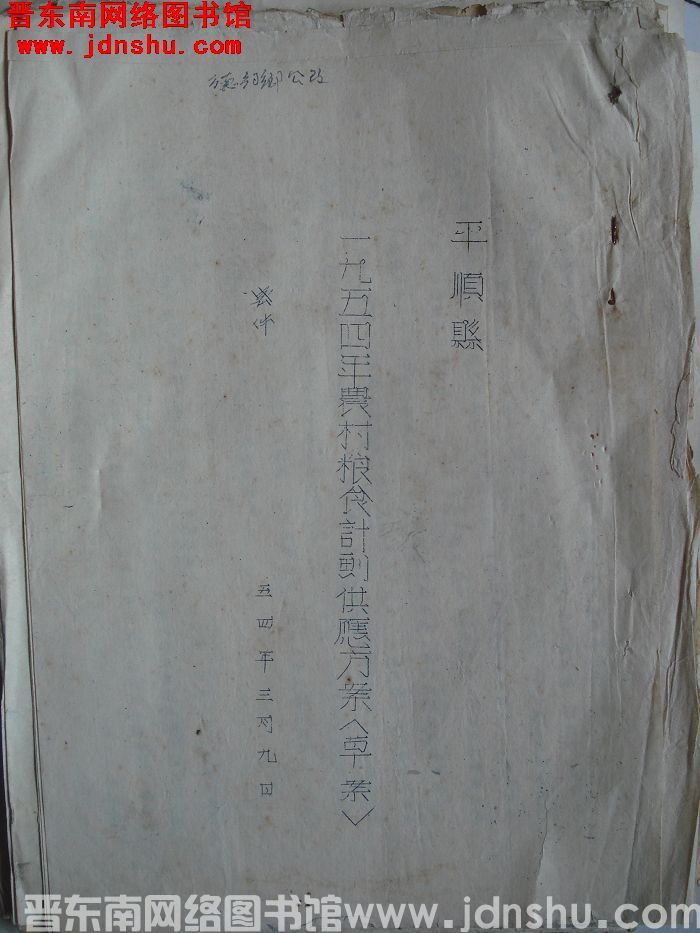 晋东南网络图书馆
www.jdnshu.com
平順縣
一九五四年農村粮食計劃供應方案〈草案〉
五四年三月九日
晋东南网络图书馆 www.jdnshu.com